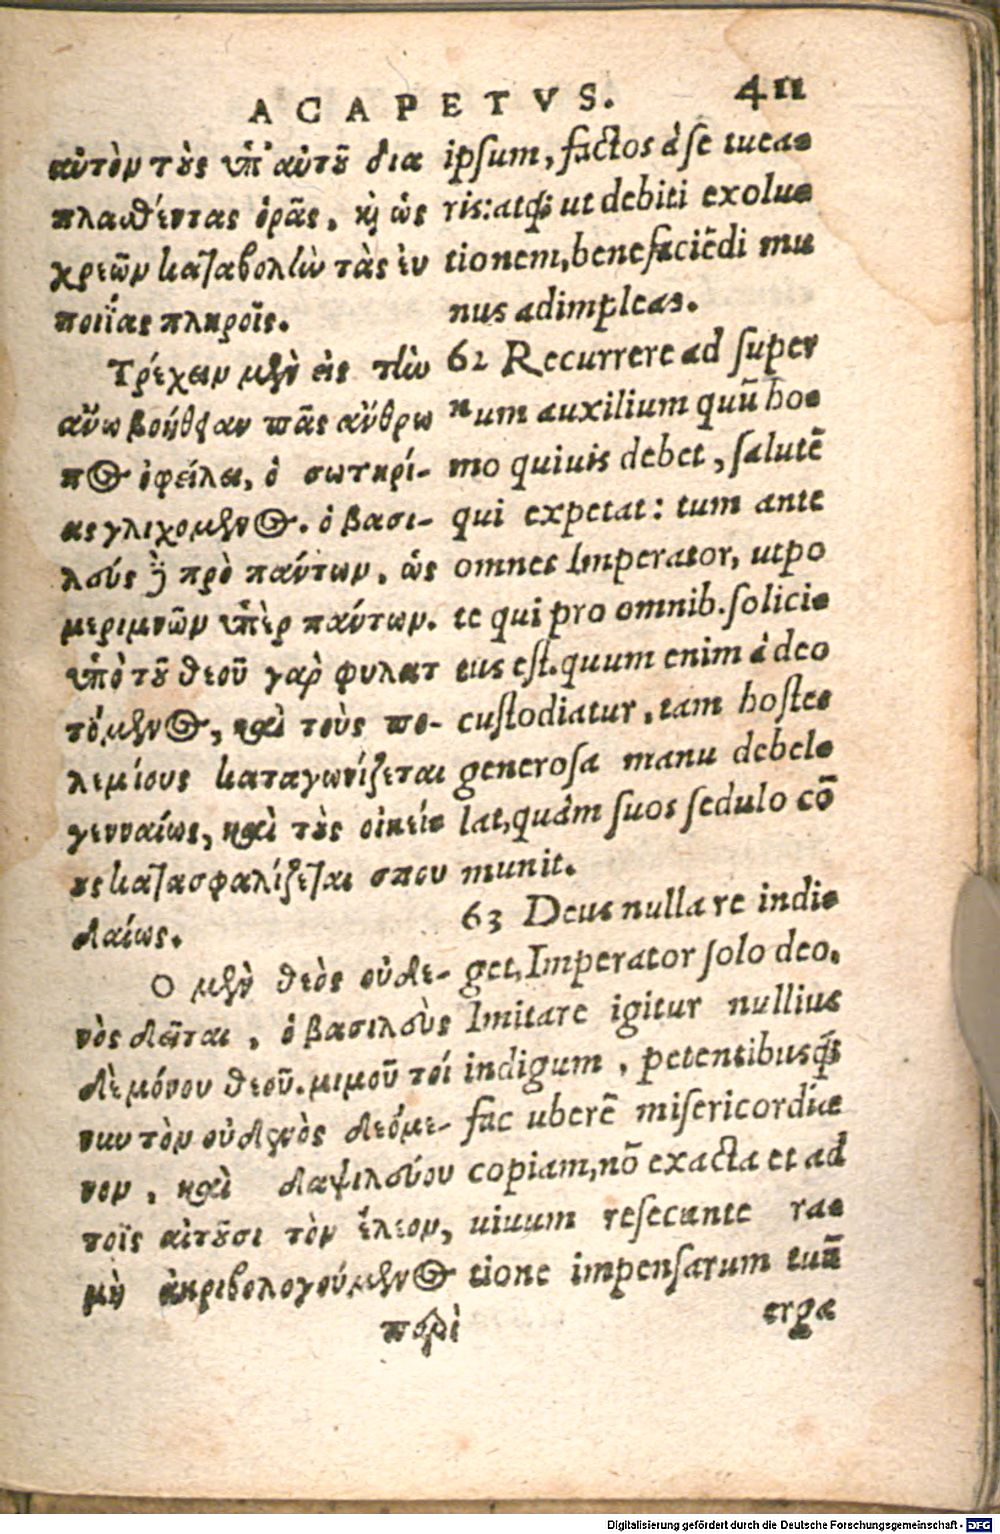 ACAPETVS. 411
αὐτὸν τοὺς ὑπ' αὐτοῦ δια
πλασθέντας ὁρᾶς, κỳ ὡς
χρεῶν καταβολὴν τὰς εὐ
ποιΐας πληροῖς.
Τρέχειν μὲν εἰς τὴν
ἄνω βοήθειαν πᾶς ἄνθρω
πος ὀφείλει, ὁ σωτηρί-
ας γλιχόμενος. ὁ βασι-
λεύς δὲ πρὸ πάντων, ὡς
μεριμνῶν ὑπὲρ πάντων.
ὑπὸ τοῦ θεοῦ γὰρ φυλατ
τόμενος, καὶ τοὺς πο-
λεμίους καταγωνίζεται
γενναίως, καὶ τοὺς οἰκεί-
ους κατασφαλίζεται σπου
δαίως.
Ο μὲν θεὸς οὐδε-
νὸς δεῖται, ὁ βασιλεὺς
δὲ μόνου θεοῦ. μιμοῦ τοί
νυν τὸν οὐδενὸς δεόμε-
νον, καὶ δαψιλεύου
τοῖς αἰτοῦσι τὸν ἔλεον,
μὴ ἀκριβολογούμενος
περὶ
ipsum, factos à se tuea-
ris: atq; ut debiti exolu-
tionem, benefaciẽdi mu
nus adimpleas.
62 Recurrere ad super
num auxilium quũ ho-
mo quiuis debet, salutẽ
qui expetat: tum ante
omnes Imperator, utpo
te qui pro omnib. solici-
tus est. quum enim à deo
custodiatur, tam hostes
generosa manu debel-
lat, quàm suos sedulo cõ
munit.
63 Deus nulla re indi-
get, Imperator solo deo.
Imitare igitur nullius
indigum, petentibusq́;
fac uberẽ misericordiæ
copiam, nõ exacta et ad
uiuum resecante ra-
tione impensarum tuũ
erga
Digitalisierung gefördert durch die Deutsche Forschungsgemeinschaft - DFG